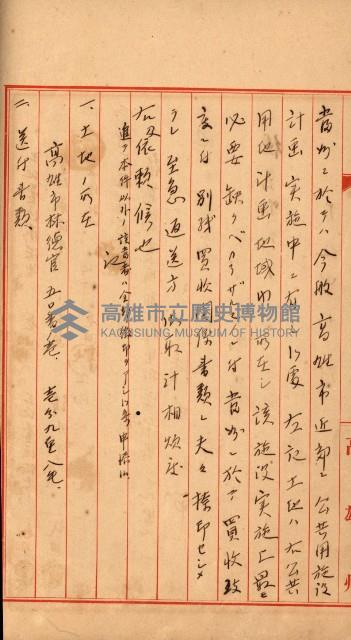 當州ニ於テハ今般高雄市近郊ニ公共用施設
計画実施中ニ有之候處左記土地ハ右公共
用地計画地域内ニ所在シ該施設実施上最モ
必要缺クベカラザルモノニ付當州ニ於テ買收致
度ニ付別紙買收関係書類ニ夫々捺印セシメ
ラレ至急返送方御取計相煩度
右及依頼候也
記
一、土地ノ所在
高雄市林德官
二、送付書類
高雄市立歷史博物館
KAOHSIUNG MUSEUM OF HISTORY
高雄州